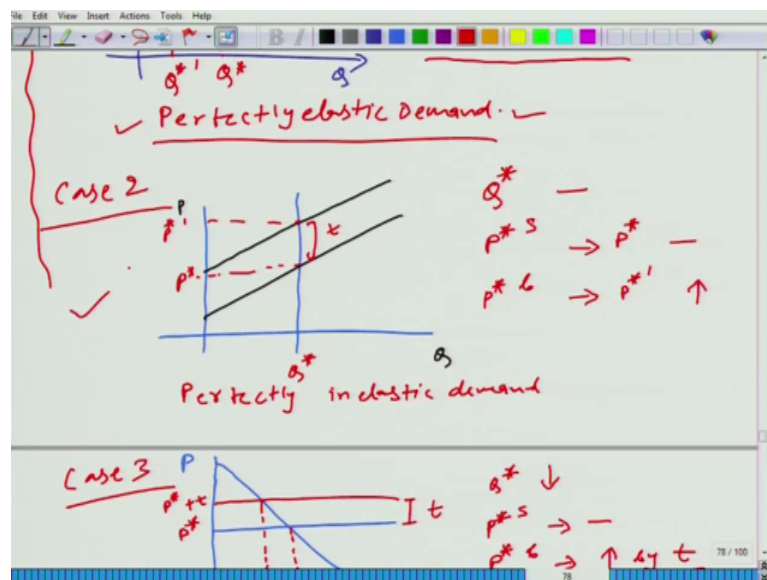 File Edit View Insert Actions Tools Help
B I
Q*' Q* Q
Perfectly elastic Demand.
Case 2
P
P*'
t
P*
Q
Q*
Perfectly inelastic demand
Q* —
P* s → P* —
P* b → P*' ↑
Case 3
P
P*+t
P*
t
Q* ↓
P* s → —
P* b → ↑ by t
78 / 100
78